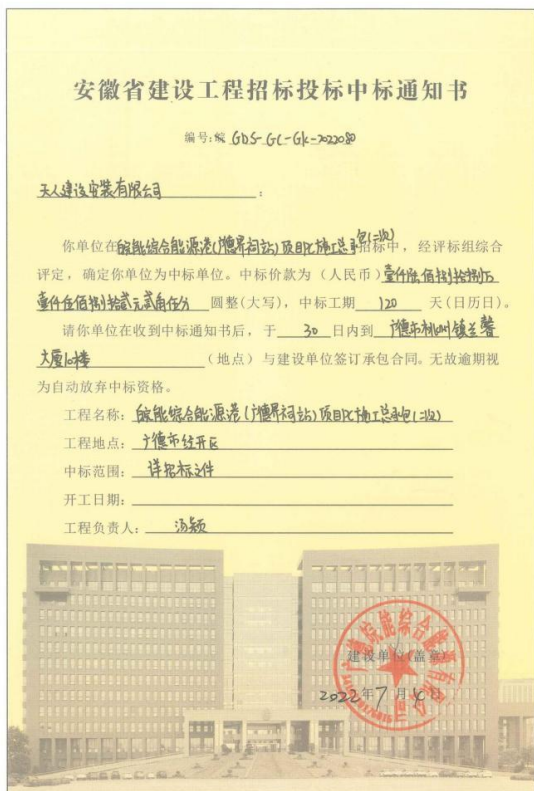 安徽省建设工程招标投标中标通知书
编号:皖 GDS-GC-GK-2022080
天人建设安装有限公司 :
你单位在皖能综合能源港(广德昇祠站)项目PC施工总承包(二次)招标中，经评标组综合
评定，确定你单位为中标单位。中标价款为（人民币）壹仟伍佰捌拾捌万
壹仟伍佰捌拾贰元贰角伍分 圆整(大写)，中标工期 120 天(日历日)。
请你单位在收到中标通知书后，于 30 日内到 广德市桃州镇兰馨
大厦10楼 （地点）与建设单位签订承包合同。无故逾期视
为自动放弃中标资格。
工程名称：皖能综合能源港(广德昇祠站)项目PC施工总承包(二次)
工程地点：广德市经开区
中标范围：详招标文件
开工日期：
工程负责人：汤颖
建设单位(盖章)
2022年7月4日